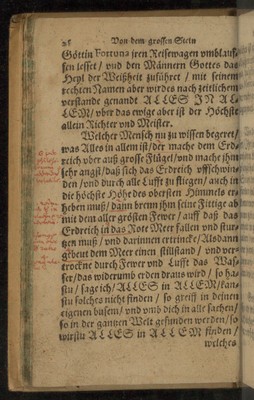 Von dem grossen Stein
Göttin Fortuna iren Reisewagen vmblauf-
fen lesset / vnd den Männern Gottes das
Heyl der Weißheit zuführet / mit seinem
rechten Namen aber wirdes nach zeitlichem
verstande genandt ALLES IN AL-
LEM / vber das ewige aber ist der Höchste
allein Richter vnd Meister.
Welcher Mensch nu zu wissen begeret /
was Alles in allem ist / der mache dem Erd-
reich vber auß grosse Flügel / vnd mache jhm
sehr angst / daß sich das Erdreich vffschwin-
den / vnd durch alle Lufft zu fliegen / auch in
die höchste Höhe des obersten Himmels er-
heben muß / dann brenn jhm seine Fittige ab
mit dem aller grösten Fewer / auff daß das
Erdreich in das Rote Meer fallen vnd stur-
tzen muß / vnd darinnen ertrincke / Alsdann
gebeut dem Meer einen stillstand / vnd ver-
trockne durch Fewer vnd Lufft das Was-
ser / das widerumb erden draus wird / so ha-
stu / sage ich / ALLES in ALLEM / kan-
stu solches nicht finden / so greiff in deinen
eigenen busem / vnd vmb dich in alle sachen /
so in der gantzen Welt gefunden werden / so
wirstu ALLES in ALLEM finden /
welches